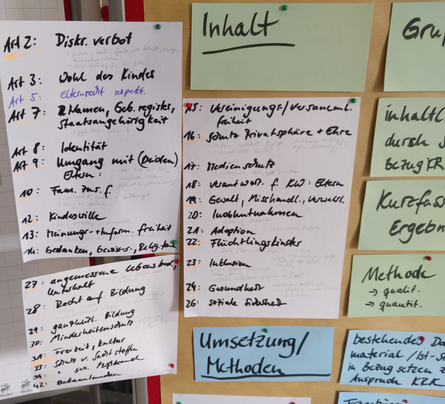 Art 2: Diskr. verbot
Art 3: Wohl des Kindes
Art 5: Elternrecht respekt.
Art 7: Namen, Geb. register,
Staatsangehörigkeit
Art 8: Identität
Art 9: Umgang mit (beiden)
Eltern
10: Fam. zus. f.
12: Kindeswille
13: Meinungs- + Inform. freiheit
14: Gedanken, Gewissen, Relig.
27: angemessene Lebens
Unterhalt
28: Recht auf Bildung
29: Bildung
30: Minderheitenschutz
31: Freizeit, Kultur
33: Schutz v. Suchtstoffen
34: " sex.
42: Bekanntmachen
Inhalt
15: Vereinigungs-/Versamml.
freiheit
16: Schutz Privatsphäre + Ehre
17: Medienschutz
18: Verantwort. f. KW: Eltern
19: Gewalt, Misshandl., Verwahrl.
20: Inobhutnahmen
21: Adoption
22: Flüchtlingskinder
23: Inklusion
24: Gesundheit
26: soziale Sicherheit
Umsetzung/
Methoden
Gru
inhaltl
durch
Bezug KR
Kurzfass
Ergebn
Methode
→ qualit.
→ quantit.
bestehendes Da
material / Ist-St
in Bezug setzen z
Anspruch KRK